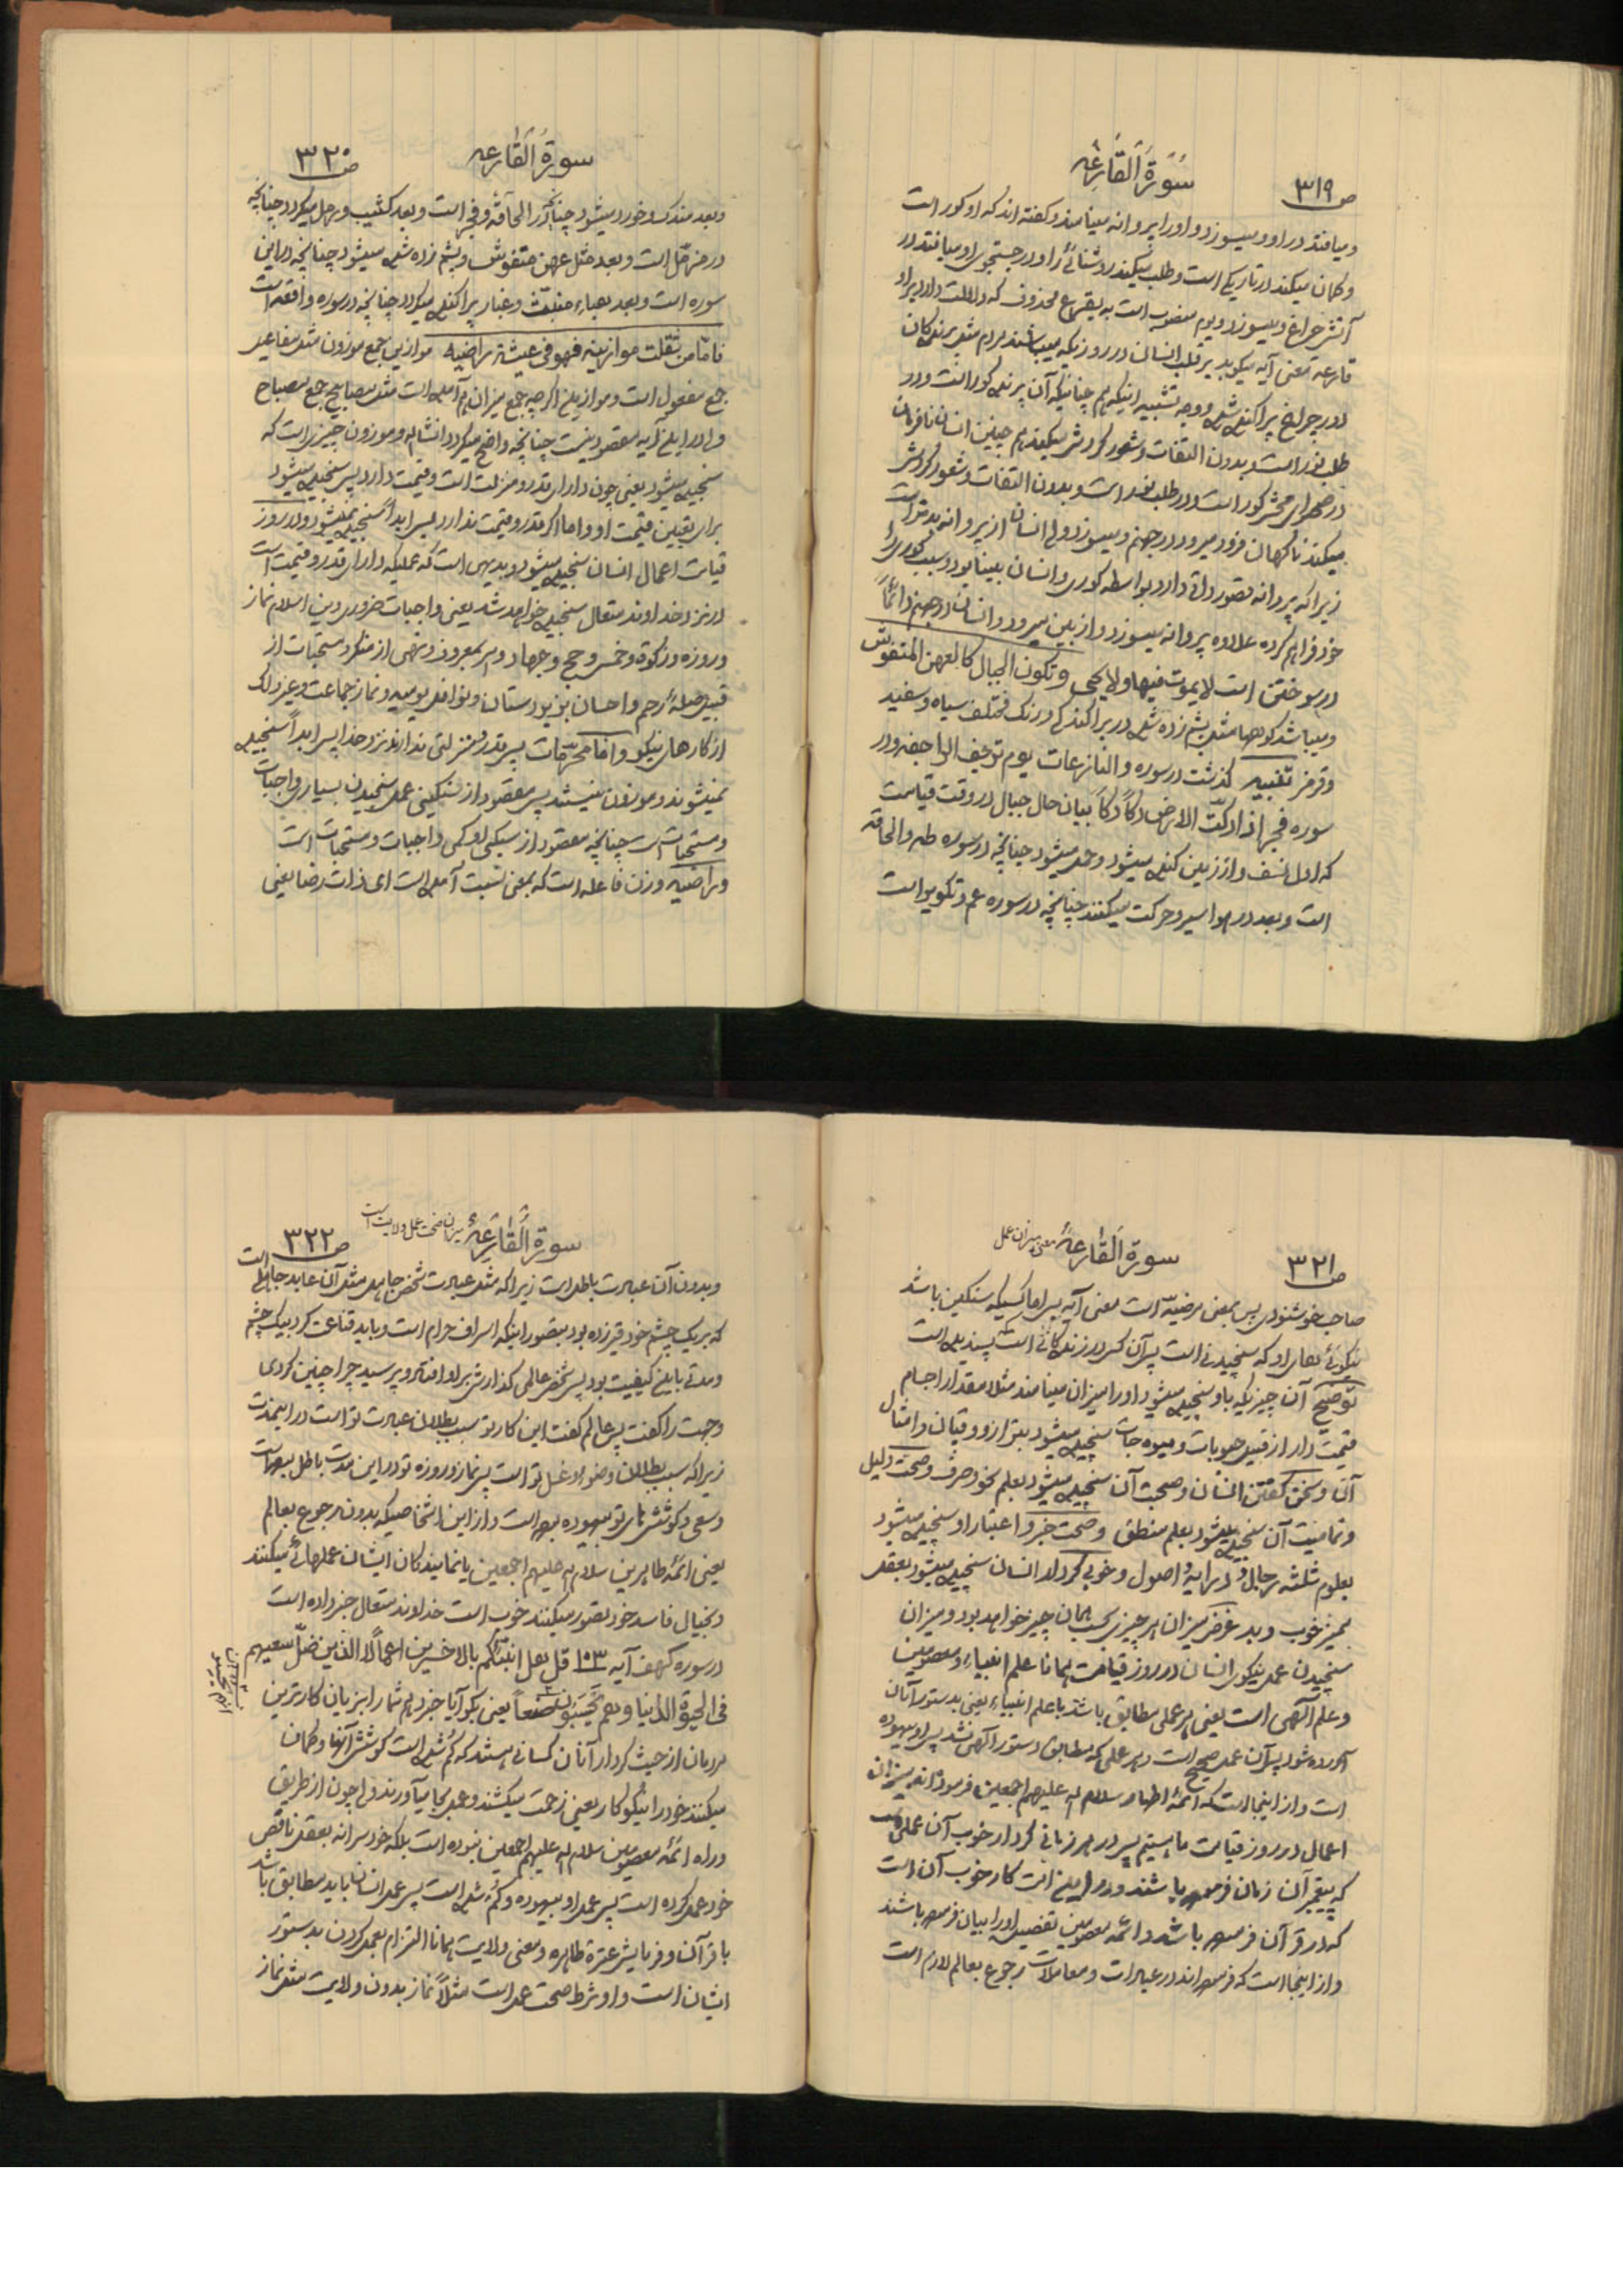 سورة القارعة
ص ۳۱۹
و میافتد در او و میسوزد و او را پروانه مینامند و گفته اند که او کور است
و گمان میکند در تاریکی است و طلب میکند روشنائی را و در جستجوی او میافتد در
آتش چراغ و میسوزد و یوم منصوب است به یقرع محذوف که دلالت دارد بر او
قارعة معنی آیه میکوبد بر قلب انسان در روزیکه میباشند مردم مثل پرندکان
دور چراغ پراکنده شده و وجه تشبیه اینکه هم چنانیکه آن پرنده کور است و در
طلب نور است و بدون التفات و شعور گردش میکند هم چنین انسان نافرمان
در صحرای محشر کور است و در طلب نور است و بدون التفات و شعور گردش
میکند ناکهان فرود میرود در جهنم و میسوزد ولی انسان از پروانه بدتر است
زیرا که پروانه قصور ذاتی دارد بواسطه کوری و انسان بینا بود و سبب کوری را
خود فراهم کرده علاوه پروانه میسوزد و از بین میرود و انسان در جهنم دائماً
در سوختن است لا یموت فیها و لا یحیی و تکون الجبال کالعهن المنفوش
و میباشد کوهها مثل پشم زده شده در پراکندکی و رنک مختلف سیاه و سفید
و قرمز تنبیه گذشت در سوره و النازعات یوم ترجف الراجفه و در
سوره فجر اذا دکّت الارض دکاً دکاً بیان حال جبال در وقت قیامت
که اول نسف و از زمین کنده میشود و حمل میشود چنانچه در سوره طه و الحاقه
است و بعد در هوا سیر و حرکت میکنند چنانچه در سوره عم و تکویر است
سورة القارعه
ص ۳۲۰
و بعد مندک و خورد میشود چنانچه در الحاقّة و فجر است و بعد کثیب و رمل میکردد چنانچه
در مزمّل است و بعد مثل عهن منفوش و پشم زده شده میشود چنانچه در این
سوره است و بعد هباء منبثّ و غبار پراکنده میکردد چنانچه در سوره واقعه است
فامّا من ثقلت موازینه فهو فی عیشة راضیه موازین جمع موزون مثل مفاعیل
جمع مفعول است و موازین اگر چه جمع میزان هم آمده است مثل مصابیح جمع مصباح
ولی در این آیه مقصود نیست چنانچه واضح میکردد انشاءالله و موزون چیزی است که
سنجیده میشود یعنی چون دارای قدر و منزلت است و قیمت دارد پس سنجیده میشود
برای تعیین قیمت او و اما اگر قدر و قیمت ندارد پس ابداً سنجیده نمیشود و در روز
قیامت اعمال انسان سنجیده میشود و بدیهی است که عملیکه دارای قدر و قیمت است
در نزد خداوند متعال سنجیده خواهد شد یعنی واجبات ضروری دین اسلام نماز
و روزه و زکوة و خمس و حج و جهاد و امر بمعروف و نهی از منکر و مستحبات از
قبیل صلهٔ رحم و احسان بزیردستان و نوافل یومیه و نماز جماعت و غیر ذلک
از کارهای نیکو و امّا محرّمات پس قدر و منزلتی ندارند نزد خدا پس ابداً سنجیده
نمیشوند و موزون نیستند پس مقصود از سنکینی عمل سنجیدن بسیاری واجبات
و مستحبات است چنانچه مقصود از سبکی او کمی واجبات و مستحبات است
و راضیه وزن فاعله است که بمعنی نسبت آمده است ای ذات رضا یعنی
سورة القارعة معنی میزان عمل
ص ۳۲۱
صاحب خوشنودی پس بمعنی مرضیّه است معنی آیه پس اما کسیکه سنکین باشد
نیکوئی های او که سنجیدنی است پس آن کس در زندکانی است پسندیده است
توضیح آن چیزیکه باو سنجیده میشود او را میزان مینامند مثلاً مقدار اجسام
قیمت دار از قبیل حبوبات و میوه جات سنجیده میشود بترازو و قپان و امثال
آن و سخن کفتن انسان و صحت آن سنجیده میشود بعلم نحو و صرف و صحت دلیل
و تمامیت آن سنجیده میشود بعلم منطق و صحت خبر و اعتبار او سنجیده میشود
بعلوم ثلثه رجال و درایه و اصول و خوبی کردار انسان سنجیده میشود بعقل
ممیز خوب و بد غرض میزان هر چیزی بحسب همان چیز خواهد بود و میزان
سنجیدن عمل نیکوی انسان در روز قیامت همانا علم انبیاء و معصومین
و علم آلهی است یعنی هر عملی مطابق باشد با علم انبیاء یعنی بدستور آنان
آورده شود پس آن عمل صحیح است و هر عملی که مطابق دستور آلهی نشد پس او بیهوده
است و از اینجا است که ائمهٔ اطهار سلام الله علیهم اجمعین فرموده اند میزان
اعمال در روز قیامت ما هستیم پس در هر زمانی کردار خوب آن عملی است
که پیغمبر آن زمان فرموده باشند و در این امت کار خوب آن است
که در قرآن فرموده باشد و ائمه معصومین تفصیل او را بیان فرموده باشند
و از اینجا است که فرموده اند در عبادات و معاملات رجوع بعالم لازم است
سورة القارعة میزان صحت عمل ولایت است
ص ۳۲۲
و بدون آن عبادت باطل است زیرا که مثل عبادت شخص جاهل مثل آن عابد جاهلی است
که بر یک چشم خود قیر زده بود بتصور اینکه اسراف حرام است و باید قناعت کرد بیک چشم
و مدتی باین کیفیت بود پس شخص عالمی کذارش بر او افتاد و پرسید چرا چنین کردی
و جهت را کفت پس عالم کفت این کار تو سبب بطلان عبادت تو است در این مدت
زیرا که سبب بطلان وضو و غسل تو است پس نماز و روزه تو در این مدت باطل بوده است
و سعی و کوشش های تو بیهوده بوده است و از این اشخاصیکه بدون رجوع بعالم
یعنی ائمهٔ طاهرین سلام الله علیهم اجمعین یا نمایندکان ایشان عملهائی میکنند
و بخیال فاسد خود تصور میکنند خوب است خداوند متعال خبر داده است
در سوره کهف آیه ۱۰۳ قل هل انبئکم بالاخسرین اعمالاً الذین ضلّ سعیهم
فی الحیوة الدنیا و هم یحسبون صنعاً یعنی بکو آیا خبر دهم شما را بزیان کارترین
انهم یحسنون
مردمان از حیث کردار آنان کسانی هستند که کم شده است کوشش آنها و گمان
میکنند خود را نیکوکار یعنی زحمت میکشند و عمل بجا میآورند ولی چون از طریق
و راه ائمه معصومین سلام الله علیهم اجمعین نبوده است بلکه خودسرانه بعقل ناقص
خود عمل کرده است پس عمل او بیهوده و کم شده است پس عمل انسان باید مطابق باشد
با قرآن و فرمایش عترة طاهره و معنی ولایت همانا التزام بعمل کردن بدستور
ایشان است و او شرط صحت عمل است مثلاً نماز بدون ولایت مثل نماز